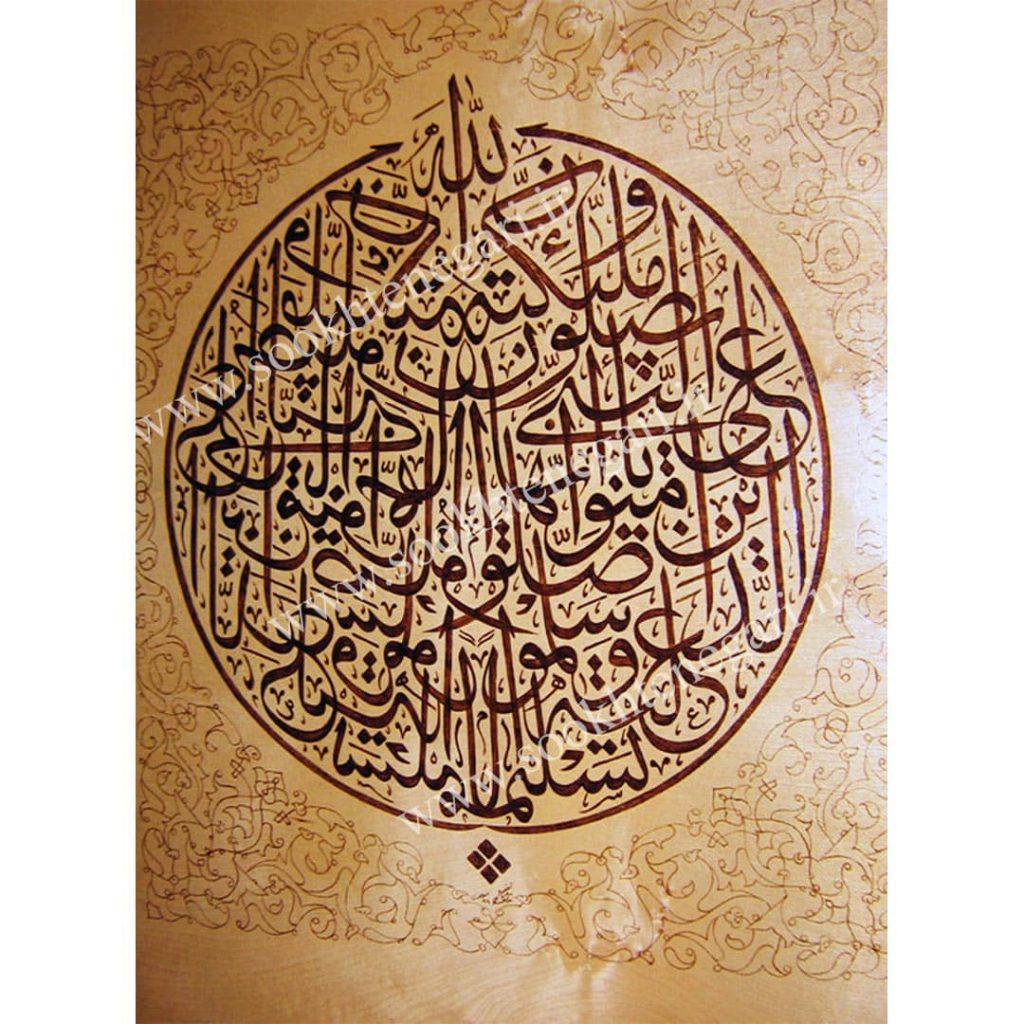 إن الله وملئكته يصلون على النبي يأيها الذين آمنوا صلوا عليه وسلموا تسليما
www.sookhtenegari.ir
www.sookhtenegari.ir
www.sookhtenegari.ir